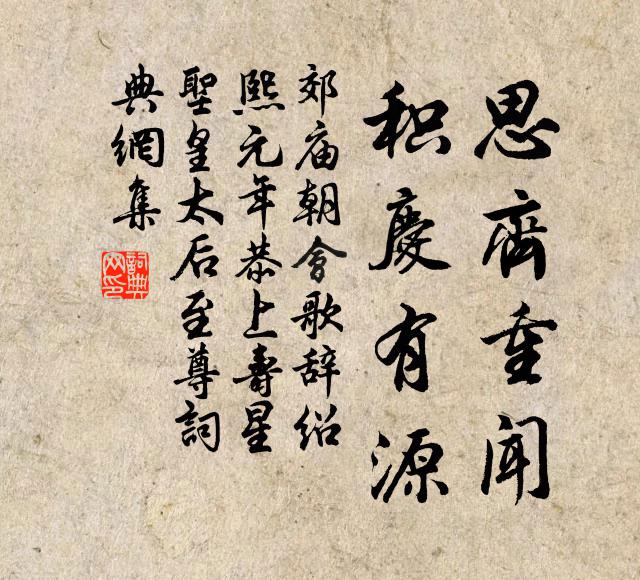 思齊重聞
积慶有源
郊庙朝會歌辞绍
熙元年恭上壽星
聖皇太后至尊詞
典網集
詞典网印